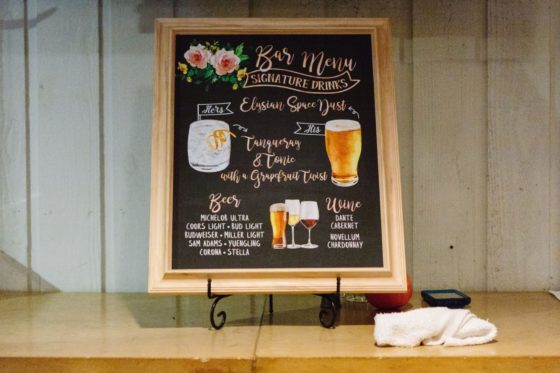 Bar Menu
SIGNATURE DRINKS
Hers
Elysian Space Dust
His
Tanqueray
& Tonic
with a Grapefruit Twist
Beer
MICHELOB ULTRA
COORS LIGHT • BUD LIGHT
BUDWEISER • MILLER LIGHT
SAM ADAMS • YUENGLING
CORONA • STELLA
Wine
DANTE
CABERNET
NOVELLUM
CHARDONNAY